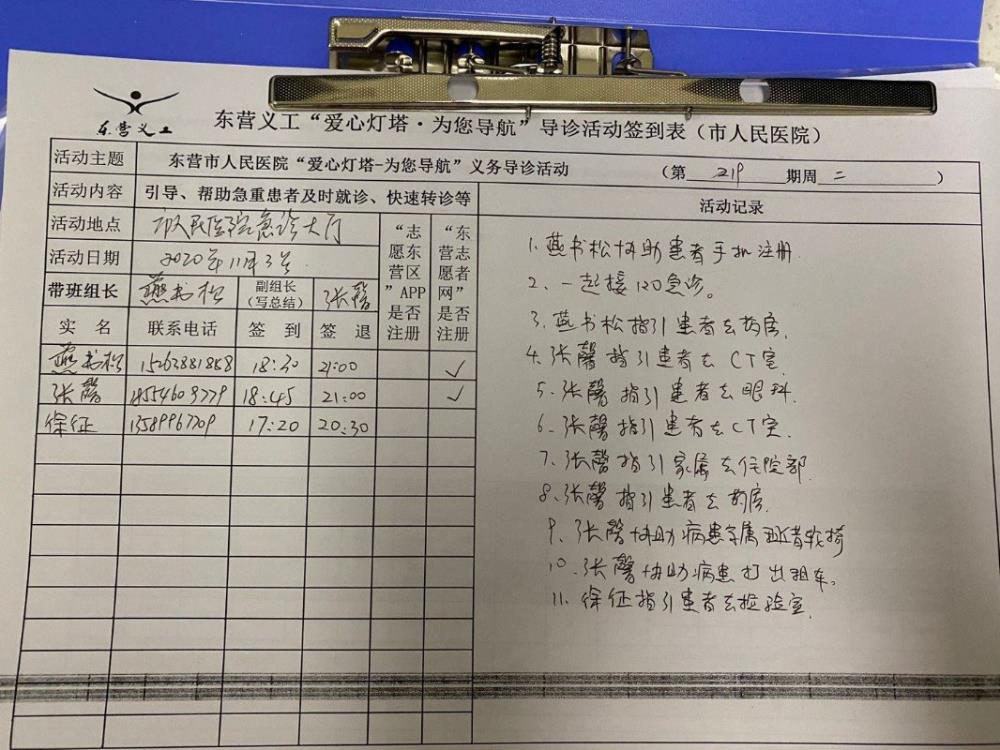 东营义工
东营义工“爱心灯塔·为您导航”导诊活动签到表（市人民医院）
活动主题 东营市人民医院“爱心灯塔-为您导航”义务导诊活动 （第 219 期周 二 ）
活动内容 引导、帮助急重患者及时就诊、快速转诊等
活动地点 市人民医院急诊大厅
活动日期 2020年11月3号.
带班组长 燕书松 副组长（写总结） 张馨
“志愿东营区”APP是否注册
“东营志愿者网”是否注册
实 名 联系电话 签 到 签 退
燕书松 15263881888 18:30 21:00 ✓
张馨 18:45 21:00 ✓
徐征 13589967709 17:20 20:30
活动记录
1.燕书松协助患者手机注册.
2、一起接120急诊。
3.燕书松指引患者去药房.
4.张馨指引患者去CT室.
5、张馨指引患者去眼科.
6、张馨指引患者去CT室.
7、张馨指引家属去住院部
8、张馨指引患者去药房.
9、张馨协助病患家属 轮椅
10.张馨协助病患打出租车。
11.徐征指引患者去检验室.